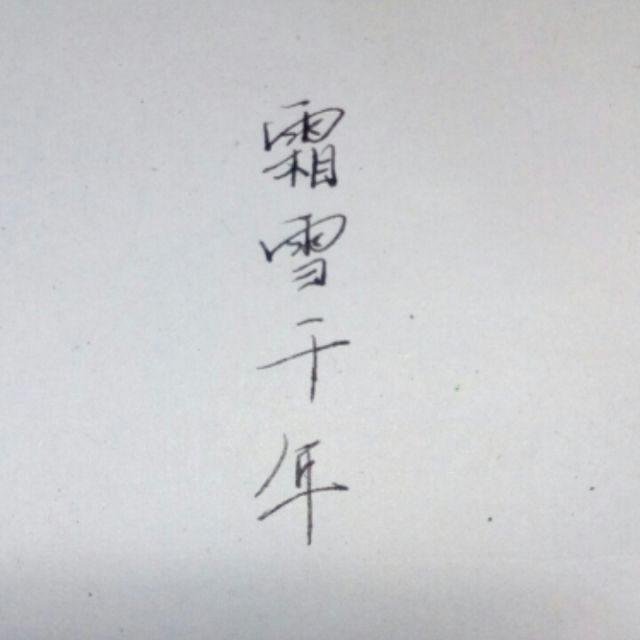 霜雪千年